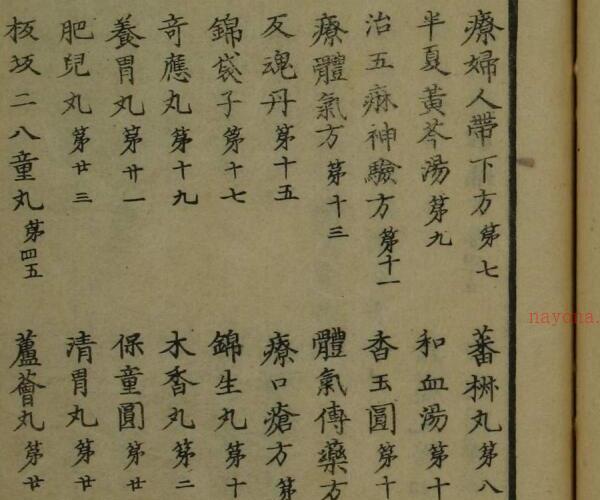 療婦人帶下方第七 蕃丸第八
半夏黃芩湯第九 和血湯第十
治五痳神驗方第十一 杳玉圓第十
療體氣方第十三 體氣傅藥方
反魂丹第十五 療口瘡方第
錦袋子第十七 錦生丸第十
奇應丸第十九 木香丸第二
養胃丸第廿一 保童圓第廿
肥兒丸第廿三 清胃丸第廿
板坂二八童丸第四五 蘆薈丸第廿
nayona.